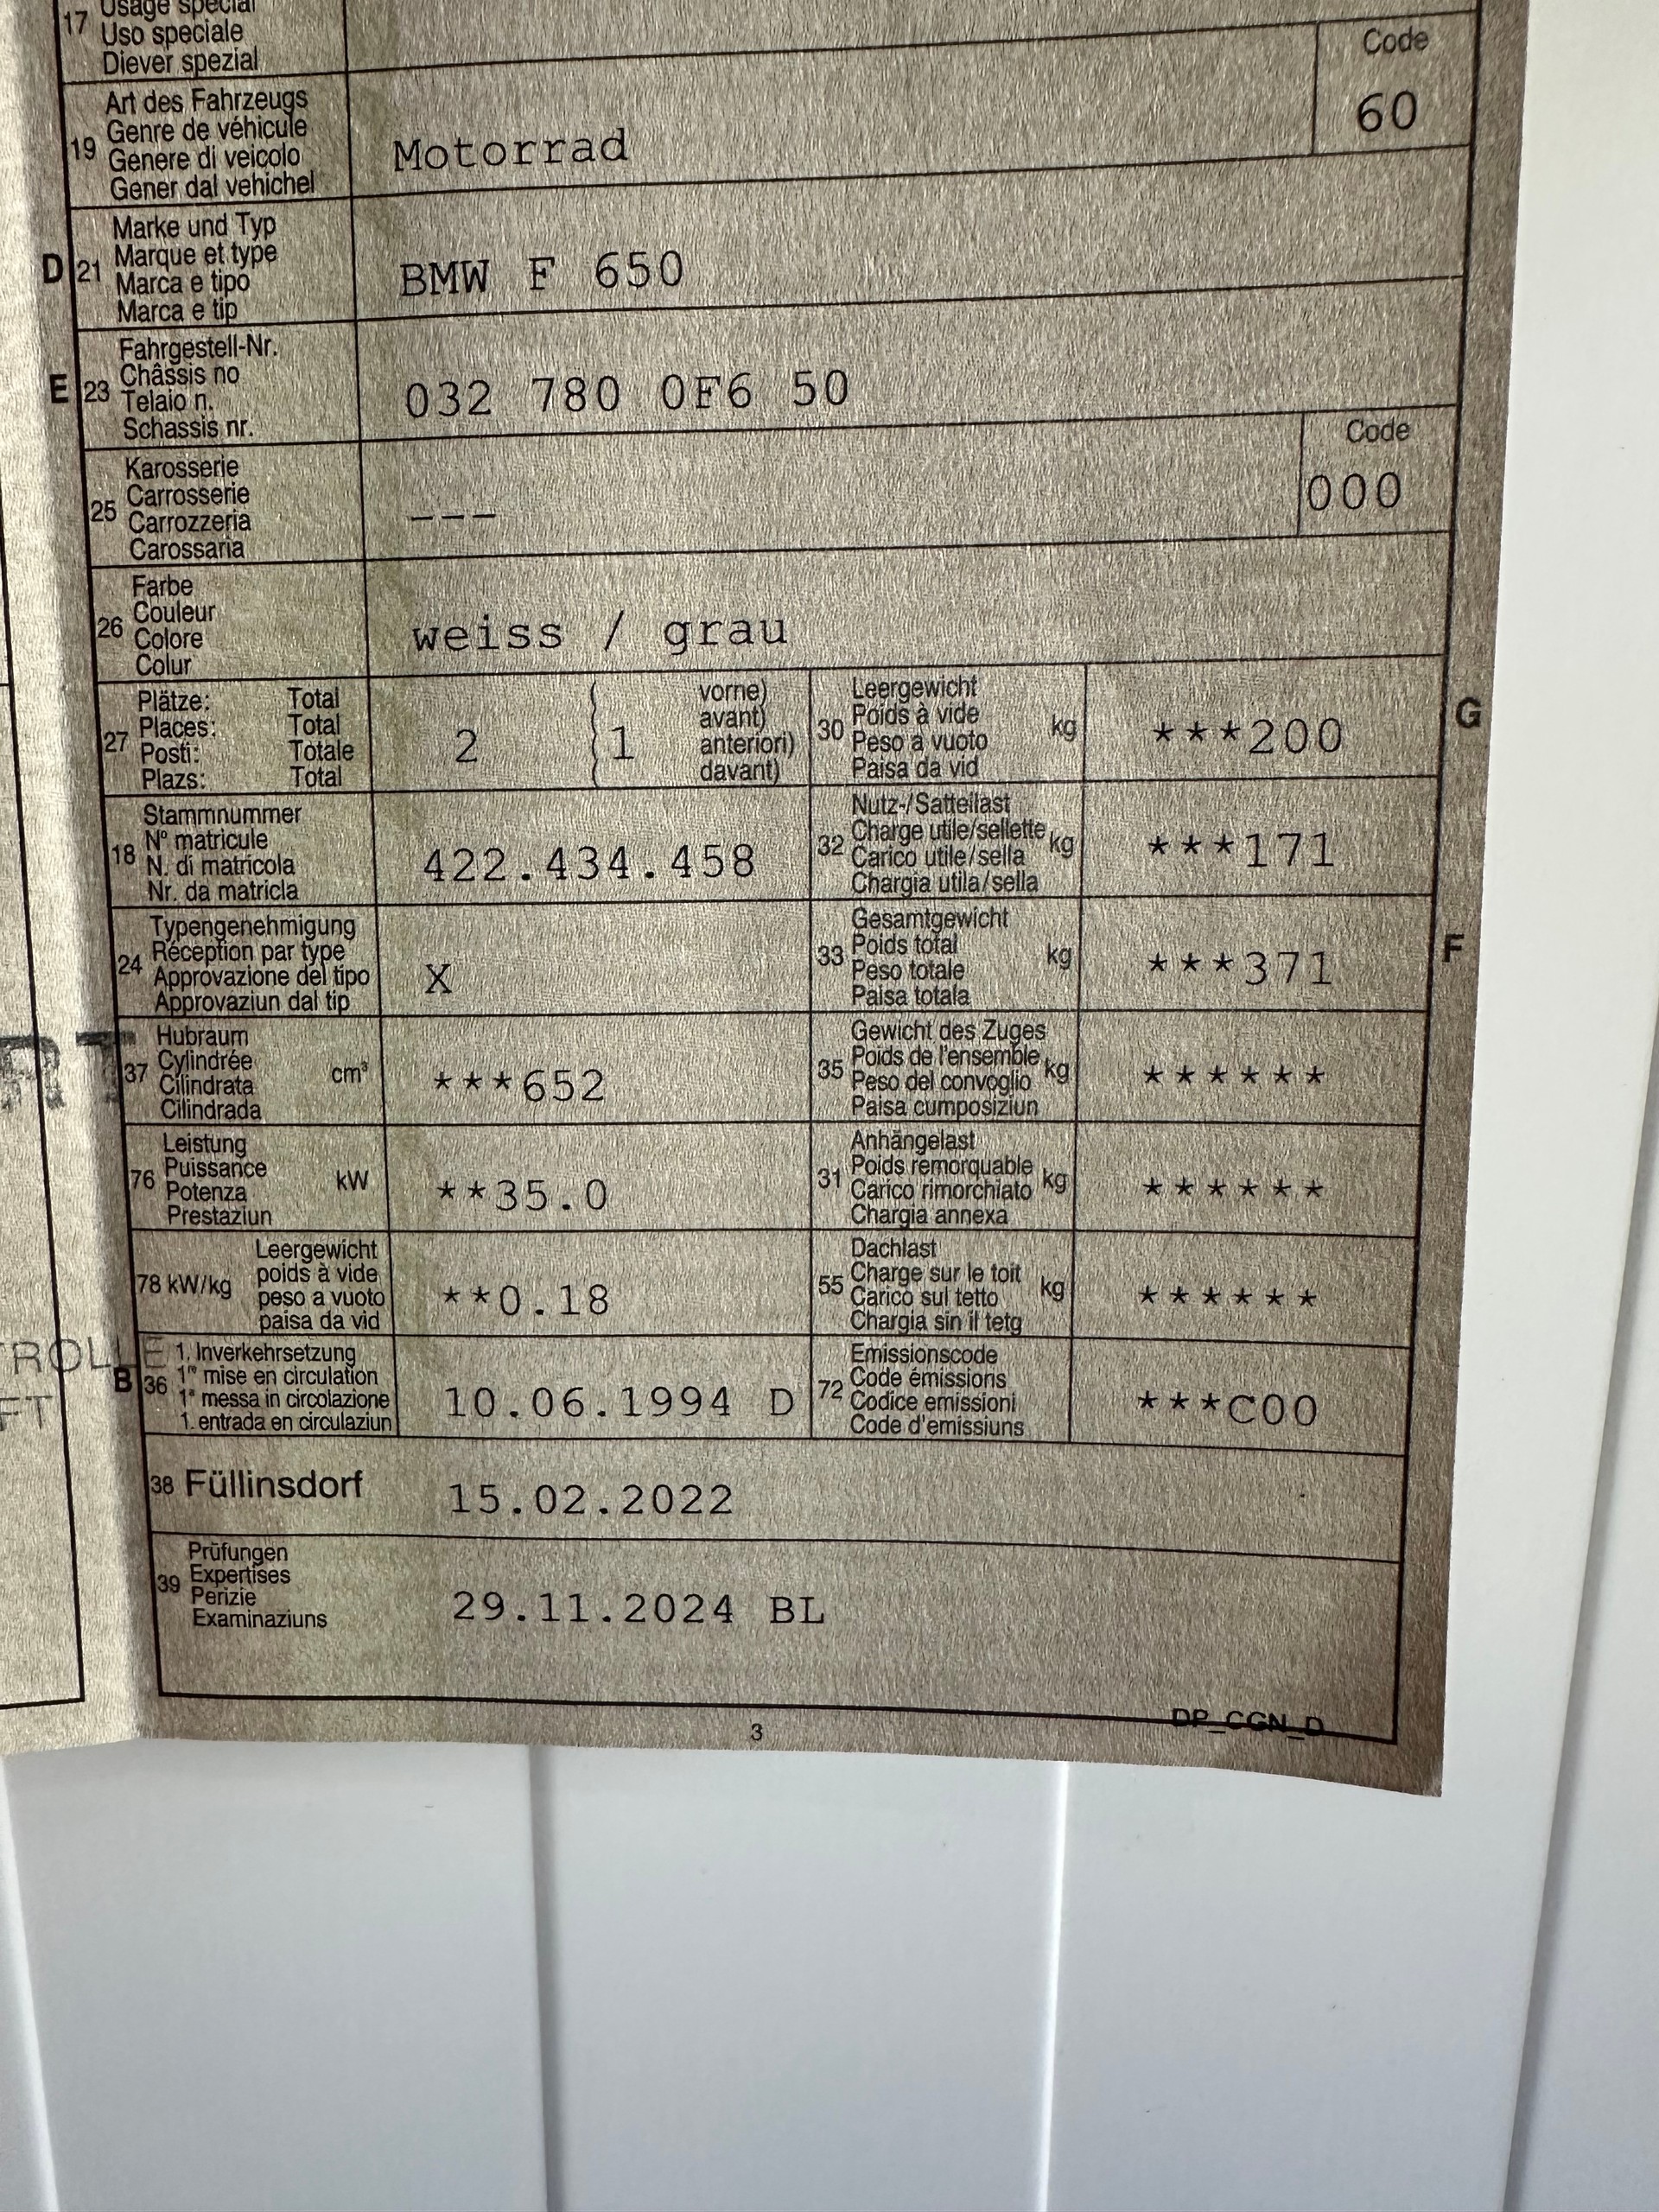 17 Usage spécial
Uso speciale
Diever spezial
Code
Art des Fahrzeugs
19 Genre de véhicule
Genere di veicolo
Gener dal vehichel
Motorrad
60
Marke und Typ
D 21 Marque et type
Marca e tipo
Marca e tip
BMW F 650
Fahrgestell-Nr.
E 23 Châssis no
Telaio n.
Schassis nr.
032 780 0F6 50
Code
Karosserie
25 Carrosserie
Carrozzeria
Carossaria
---
000
Farbe
26 Couleur
Colore
Colur
weiss / grau
Plätze: Total
27 Places: Total
Posti: Totale
Plazs: Total
2 ( 1
vorne)
avant)
anteriori)
davant)
Leergewicht
30 Poids à vide kg
Peso a vuoto
Paisa da vid
***200
G
Stammnummer
18 N° matricule
N. di matricola
Nr. da matricla
422.434.458
Nutz-/Sattellast
32 Charge utile/sellette kg
Carico utile/sella
Chargia utila/sella
***171
Typengenehmigung
24 Réception par type
Approvazione del tipo
Approvaziun dal tip
X
Gesamtgewicht
33 Poids total kg
Peso totale
Paisa totala
***371
F
Hubraum
37 Cylindrée cm³
Cilindrata
Cilindrada
***652
Gewicht des Zuges
35 Poids de l'ensemble kg
Peso del convoglio
Paisa cumposiziun
******
Leistung
76 Puissance kW
Potenza
Prestaziun
**35.0
Anhängelast
31 Poids remorquable kg
Carico rimorchiato
Chargia annexa
******
Leergewicht
78 kW/kg poids à vide
peso a vuoto
paisa da vid
**0.18
Dachlast
55 Charge sur le toit kg
Carico sul tetto
Chargia sin il tetg
******
1. Inverkehrsetzung
B 36 1re mise en circulation
1a messa in circolazione
1. entrada en circulaziun
10.06.1994 D
Emissionscode
72 Code émissions
Codice emissioni
Code d'emissiuns
***C00
38 Füllinsdorf 15.02.2022
Prüfungen
39 Expertises
Perizie
Examinaziuns
29.11.2024 BL
3
DP_CGN_D